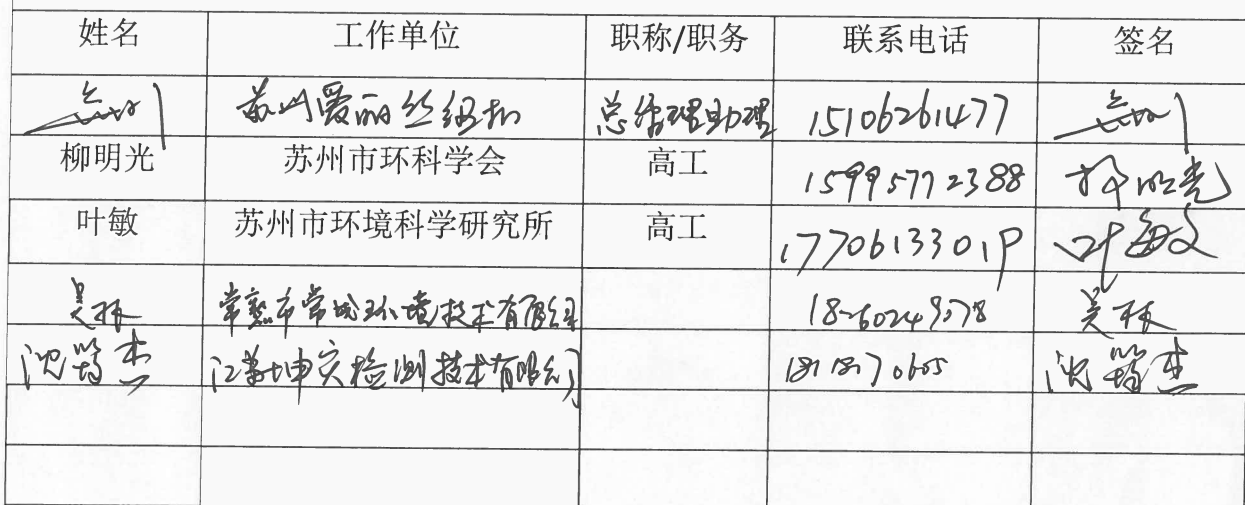 姓名 工作单位 职称/职务 联系电话 签名
苏州爱丽丝纽扣 总经理助理 15106261477
柳明光 苏州市环科学会 高工 15995772388 柳明光
叶敏 苏州市环境科学研究所 高工 17706133019 叶敏
吴振 常熟市常城环境技术有限公司 吴振
沈 杰 江苏坤实检测技术有限公司 沈 杰